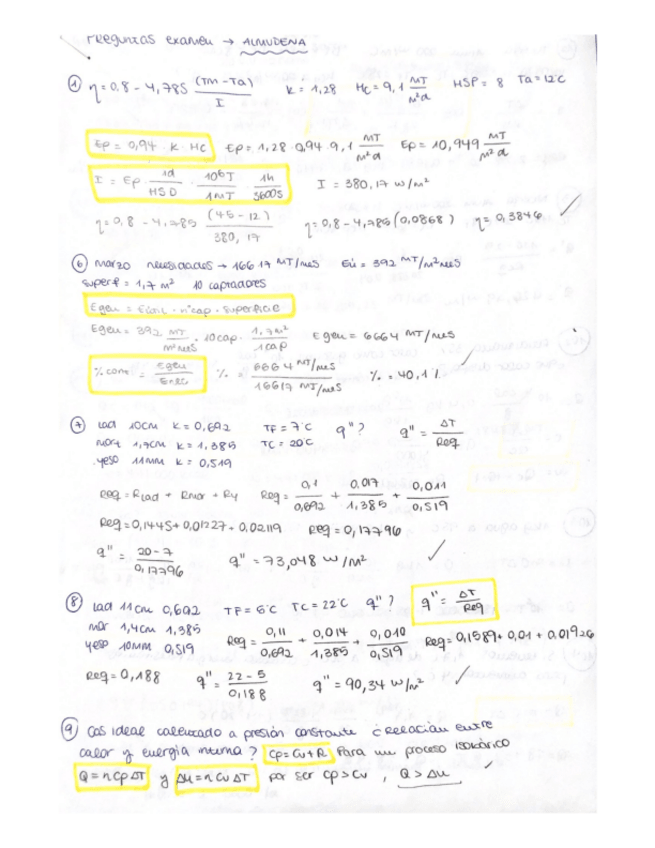 Preguntas examen → ALMUDENA
① η=0,8 - 4,785 (Tm-Ta)/I K=1,28 Hc=9,1 MJ/m²d HSP=8 Ta=12ºC
Ep=0,94·K·Hc Ep=1,28·0,94·9,1 MJ/m²d Ep=10,949 MJ/m²d
I=Ep· 1d/HSD · 10⁶J/1MJ · 1h/3600s I=380,17 w/m²
η=0,8-4,785 (45-12)/380,17 η=0,8-4,785(0,0868) η=0,3846 ✓
⑥ Marzo necesidades → 16617 MJ/mes Eú=392 MJ/m²mes
superf=1,7m² 10 captadores
Egen = Eútil · nºcap · superficie
Egen=392 MJ/m²mes · 10cap · 1,7m²/1cap Egen=6664 MJ/mes
%cont.= Egen/Enec %= 6664 MJ/mes / 16617 MJ/mes %=40,1% ✓
⑦ Lad 10cm K=0,692 TF=7ºC q"? q"= ΔT/Req
mort 1,7cm K=1,385 TC=20ºC
yeso 11mm K=0,519
Req=Rlad+Rmor+Ry Req= 0,1/0,692 + 0,017/1,385 + 0,011/0,519
Req=0,1445+0,01227+0,02119 Req=0,17796
q"= 20-7/0,17796 q"=73,048 w/m² ✓
⑧ Lad 11cm 0,692 TF=5ºC TC=22ºC q"? q"= ΔT/Req
mor 1,4cm 1,385
yeso 10mm 0,519
Req= 0,11/0,692 + 0,014/1,385 + 0,010/0,519 Req=0,1589+0,01+0,01926
Req=0,188 q"= 22-5/0,188 q"=90,34 w/m² ✓
⑨ Gas ideal calentado a presión constante ¿Relación entre
calor y energía interna? Cp=Cv+R Para un proceso isobárico
Q=nCpΔT y ΔU=nCvΔT por ser Cp>Cv, Q>ΔU ✓